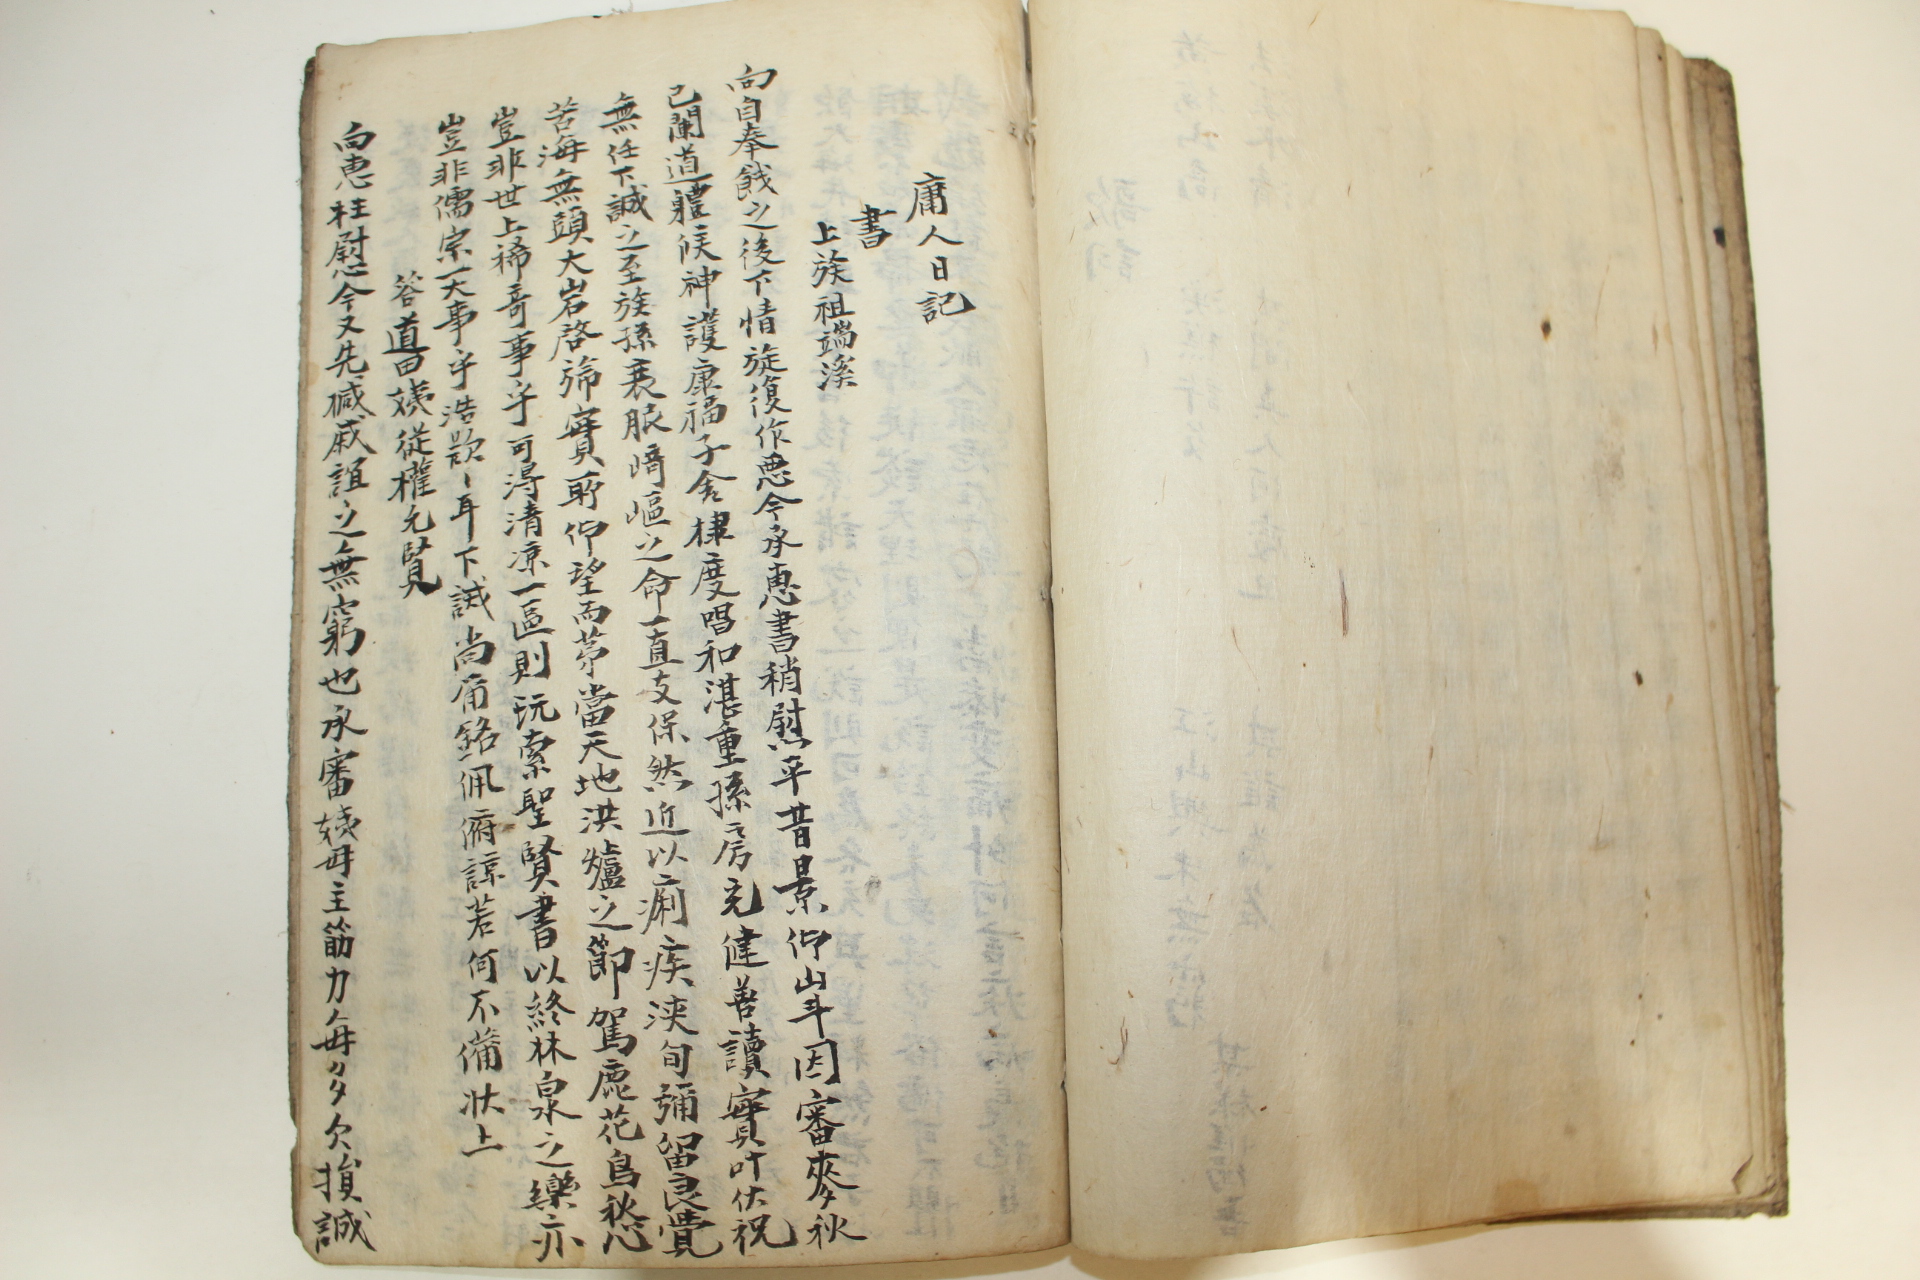 庸人日記
書
上族祖端溪
向自奉餞之後下情旋復作悪今承惠書稍慰平昔景仰山斗因審麥秋
已闌道體候神護康福子舍棣度唱和湛重孫房充健善讀實叶伏祝
無任下誠之至族孫衰服崎嶇之命一直支保然近以痢疾浹旬彌留良覺
苦海無頭大岩啓旆實所仰望而第當天地洪爐之節駕鹿花鳥愁
豈非世上稀奇事乎可得清凉一區則玩索聖賢書以終林泉之樂亦
豈非儒宗一大事乎浩歎〻耳下誠尚庸銘佩俯諒若何不備狀上
答道田姨從權允賢
向惠枉慰今又先緘戚誼之無窮也承審姨母主筋力每多欠損誠